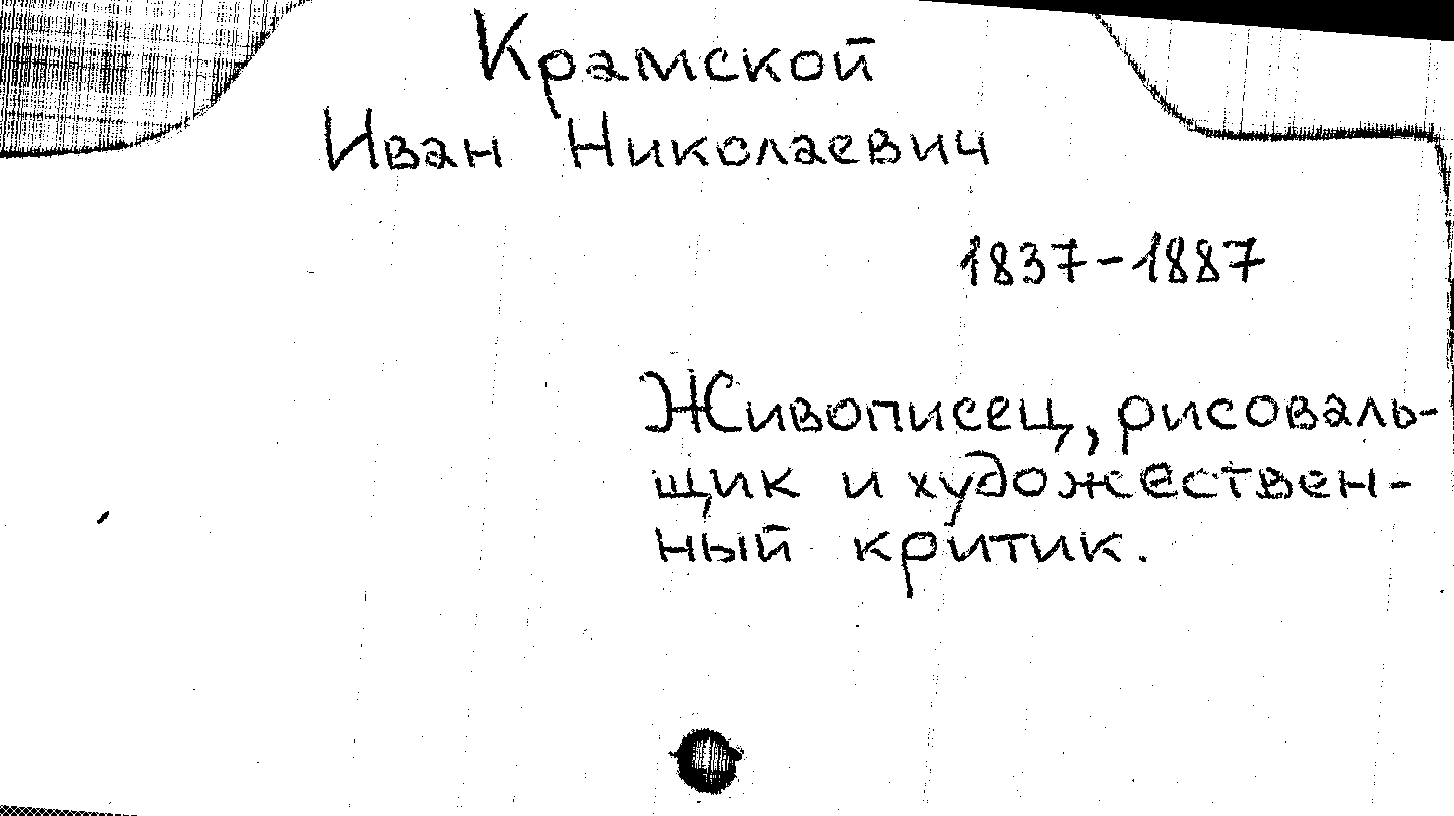 Крамской
Иван Николаевич
1837-1887
Живописец, рисоваль-
щик и художествен-
ный критик.